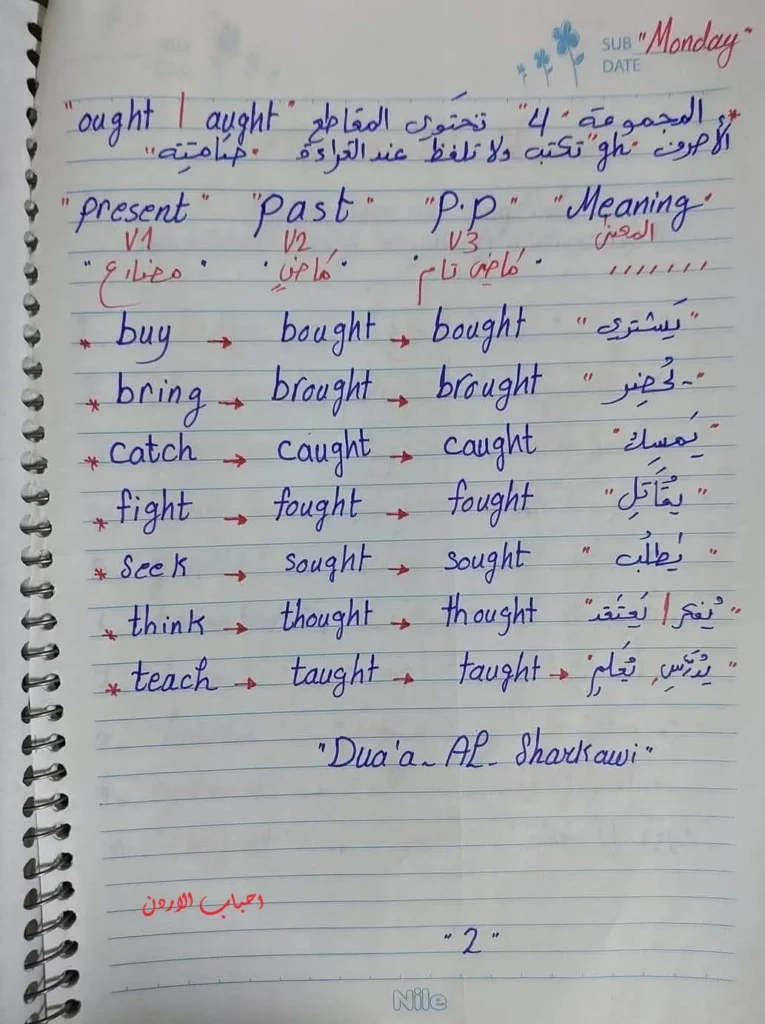 SUB "Monday"
DATE
* المجموعة "4" تحتوي المقاطع "ought | aught"
الأحرف "gh" تكتب ولا تلفظ عند القراءة "صامتة"
"present" "past" "P.p" "Meaning"
V1 V2 V3 المعنى
"مضارع" "ماضي" "ماضي تام" ,,,,,,,
* buy → bought → bought "يَشتري"
* bring → brought → brought "يُحضِر"
* catch → caught → caught "يَمسِك"
* fight → fought → fought "يقُاتِل"
* seek → sought → sought "يَطلُب"
* think → thought → thought "يُفكر | يَعتَقد"
* teach → taught → taught → "يُدَرِّس, يُعَلِم"
"Dua'a - AL - Sharkawi"
احباب الاردن
"2"
Nile